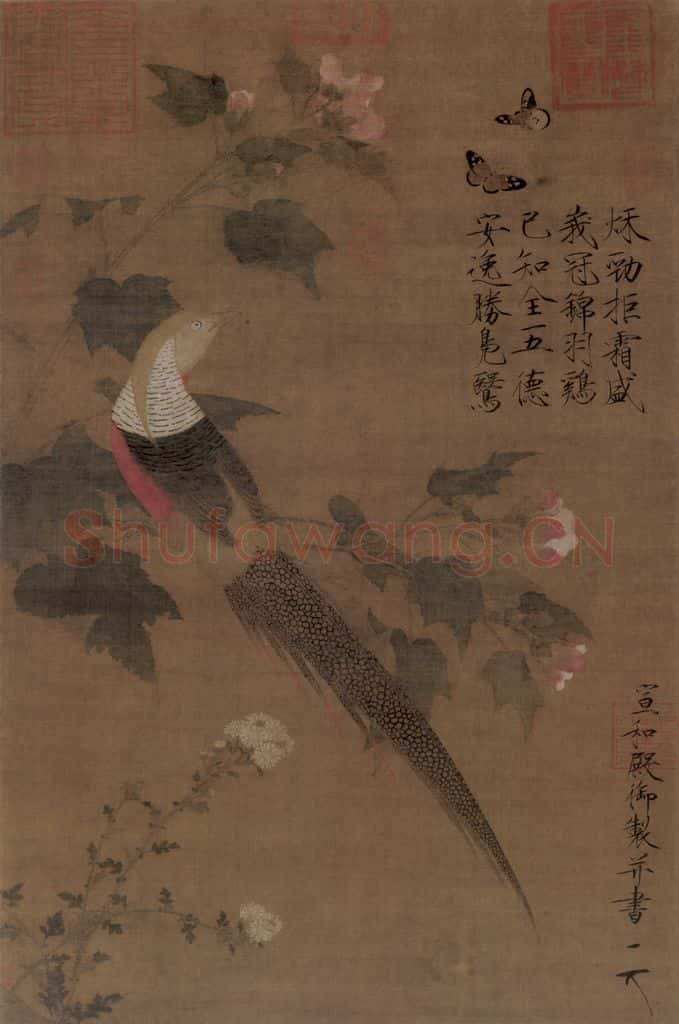 秋勁拒霜盛
峩冠錦羽鷄
已知全五德
安逸勝鳬鷖
宣和殿御製并書
Shufawang.CN